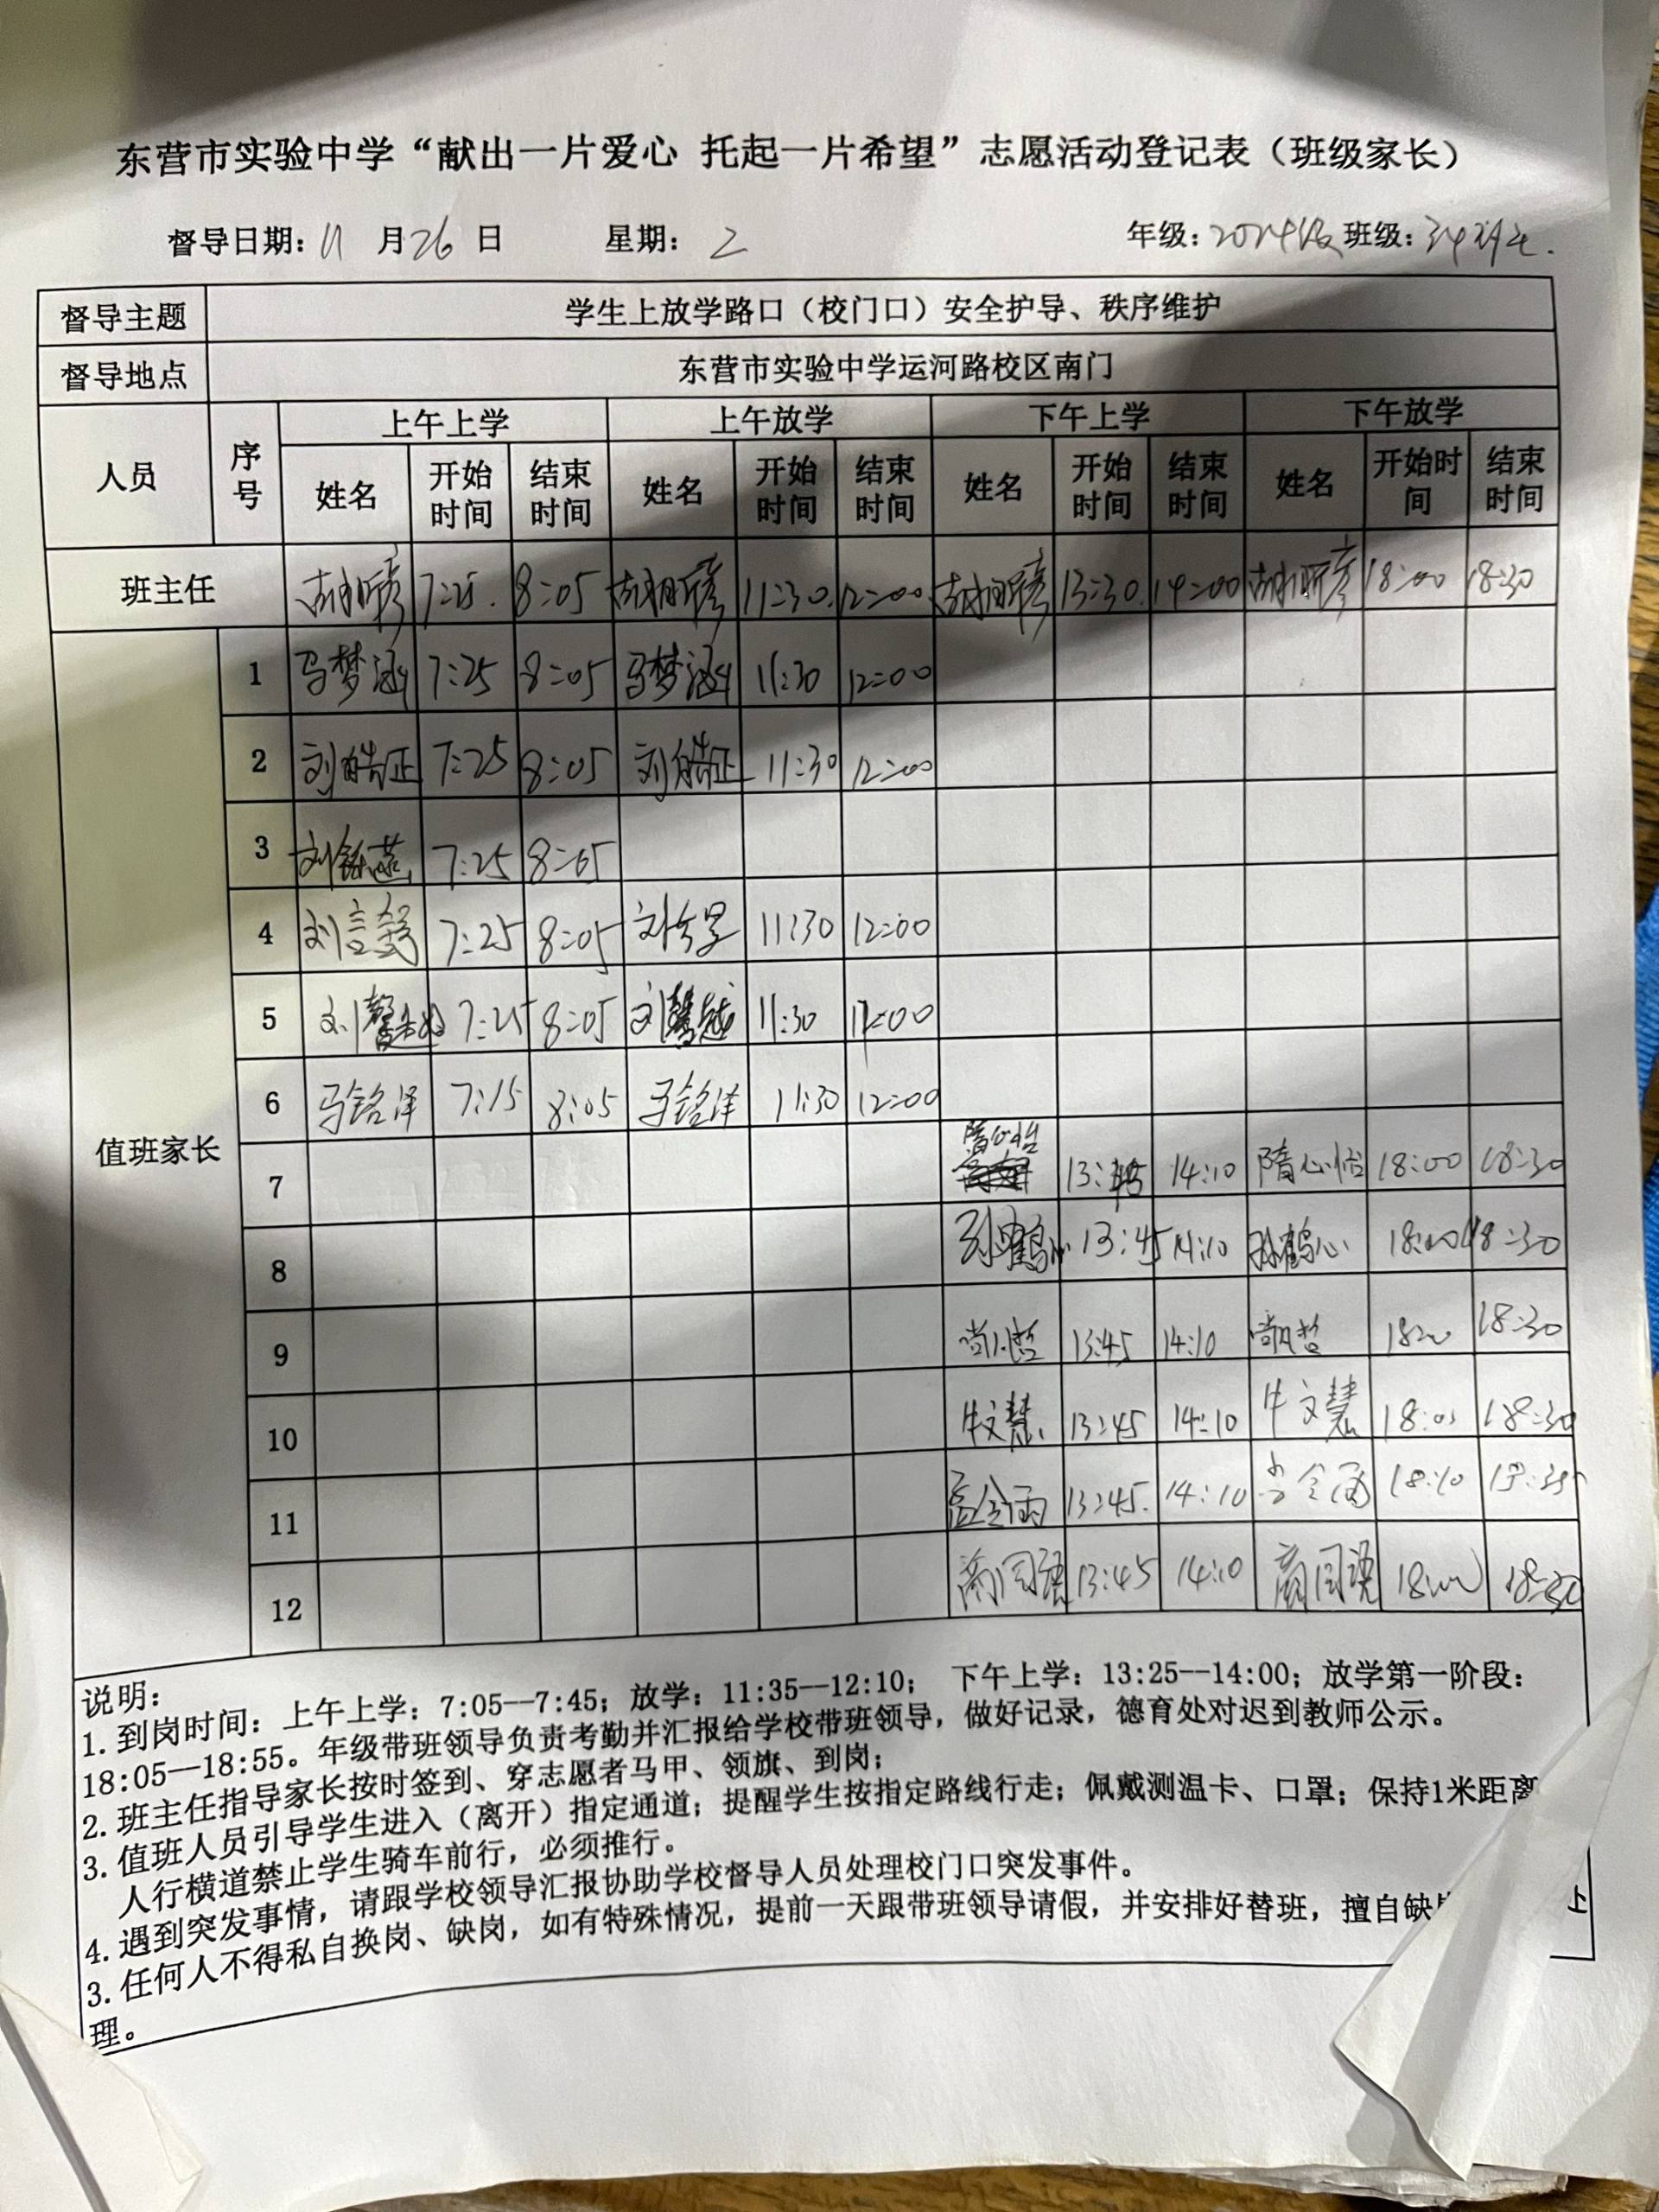 东营市实验中学“献出一片爱心 托起一片希望”志愿活动登记表（班级家长）
督导日期：11 月 26 日 星期：2 年级：2024级 班级：
督导主题 学生上放学路口（校门口）安全护导、秩序维护
督导地点 东营市实验中学运河路校区南门
人员 序号 上午上学 上午放学 下午上学 下午放学
姓名 开始时间 结束时间 姓名 开始时间 结束时间 姓名 开始时间 结束时间 姓名 开始时间 结束时间
班主任 7:25 8:05 11:30 12:00 13:30 14:00 18:00 18:30
值班家长
1 马梦涵 7:25 8:05 马梦涵 11:30 12:00
2 刘皓正 7:25 8:05 刘皓正 11:30 12:00
3 7:25 8:05
4 7:25 8:05 11:30 12:00
5 7:25 8:05 11:30
6 马铭泽 7:15 8:05 马铭泽 11:30 12:00
7 隋心怡 13:45 14:10 隋心怡 18:00 18:30
8 孙鹤心 13:45 14:10 孙鹤心 18:00 18:30
9 13:45 14:10 18:30
10 牛文慧 13:45 14:10 牛文慧 18:30
11 13:45 14:10 18:10
12 13:45 14:10 18:30
说明：
1. 到岗时间：上午上学：7:05--7:45；放学：11:35--12:10； 下午上学：13:25--14:00；放学第一阶段：
18:05—18:55。年级带班领导负责考勤并汇报给学校带班领导，做好记录，德育处对迟到教师公示。
2. 班主任指导家长按时签到、穿志愿者马甲、领旗、到岗；
3. 值班人员引导学生进入（离开）指定通道；提醒学生按指定路线行走；佩戴测温卡、口罩；保持1米距离
人行横道禁止学生骑车前行，必须推行。
4. 遇到突发事情，请跟学校领导汇报协助学校督导人员处理校门口突发事件。
3. 任何人不得私自换岗、缺岗，如有特殊情况，提前一天跟带班领导请假，并安排好替班，擅自缺 上
理。